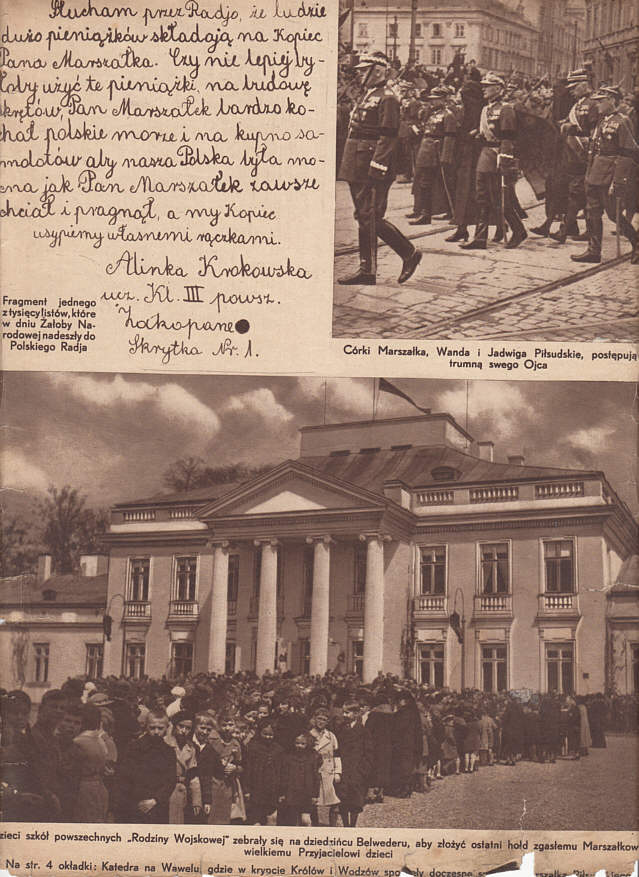 Słucham przez Radjo, że ludzie
dużo pieniążków składają na Kopiec
Pana Marszałka. Czy nie lepiej by-
łoby użyć te pieniążki, na budowę
okrętów, Pan Marszałek bardzo ko-
chał polskie morze i na kupno sa-
molotów aby nasza Polska była mo-
cna jak Pan Marszałek zawsze
chciał i pragnął, a my Kopiec
usypiemy własnemi rączkami.
Alinka Krokowska
ucz. Kl. III powsz.
Zakopane
Skrytka Nr. 1.
Fragment jednego
z tysięcy listów, które
w dniu Żałoby Na-
rodowej nadeszły do
Polskiego Radja
Córki Marszałka, Wanda i Jadwiga Piłsudskie, postępują
trumną swego Ojca
zieci szkół powszechnych „Rodziny Wojskowej" zebrały się na dziedzińcu Belwederu, aby złożyć ostatni hołd zgasłemu Marszałkow
wielkiemu Przyjacielowi dzieci
Na str. 4 okładki: Katedra na Wawelu, gdzie w krypcie Królów i Wodzów spo ły doczesne